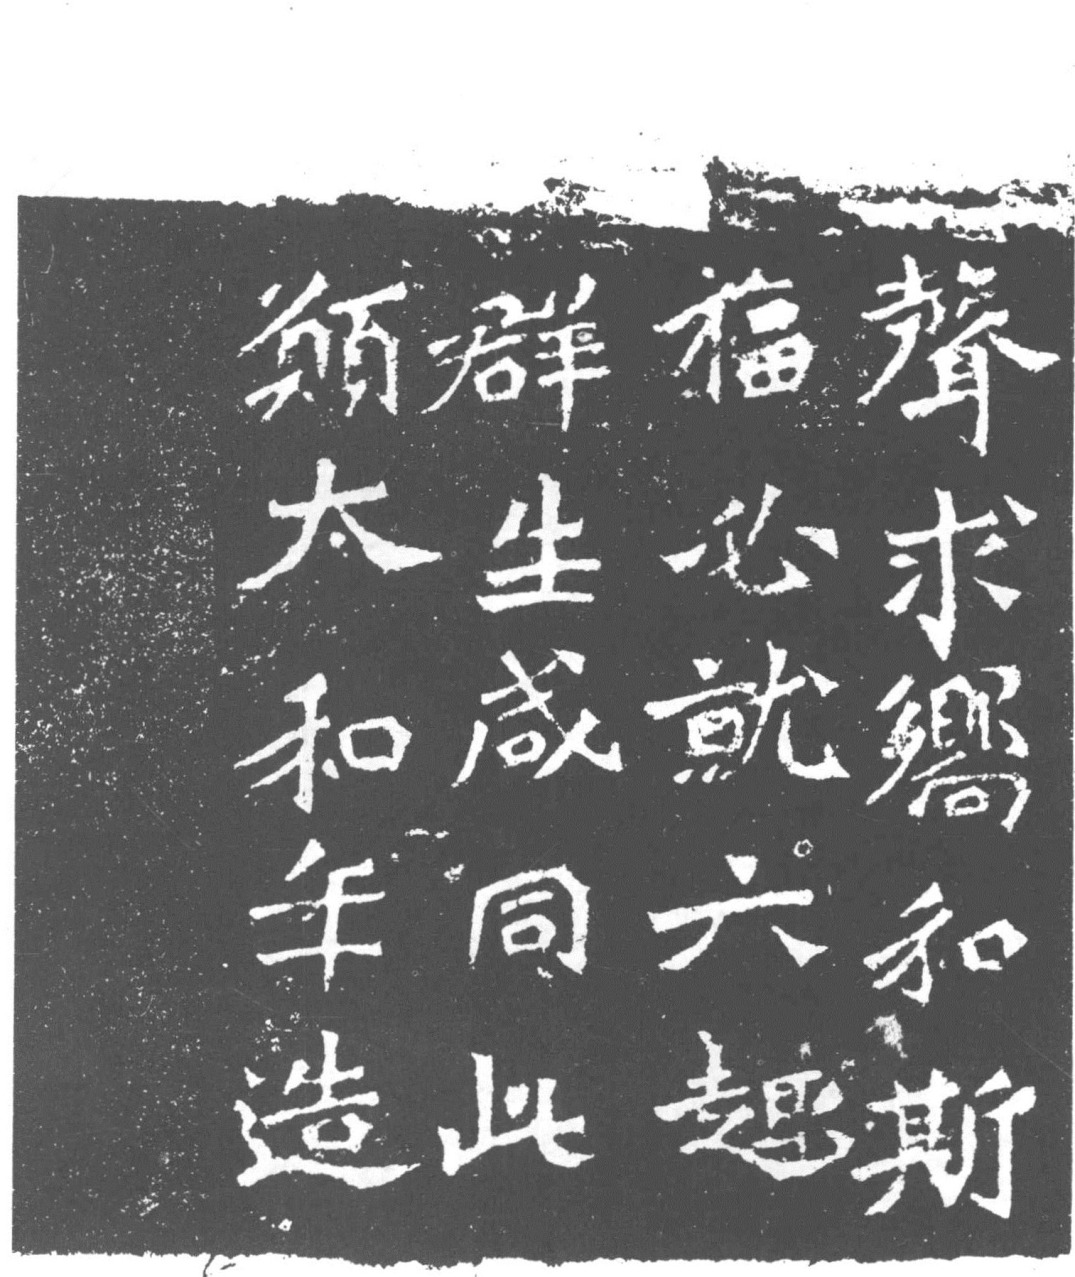 聲求響和斯
福必就六趣
群生咸同此
願太和年造